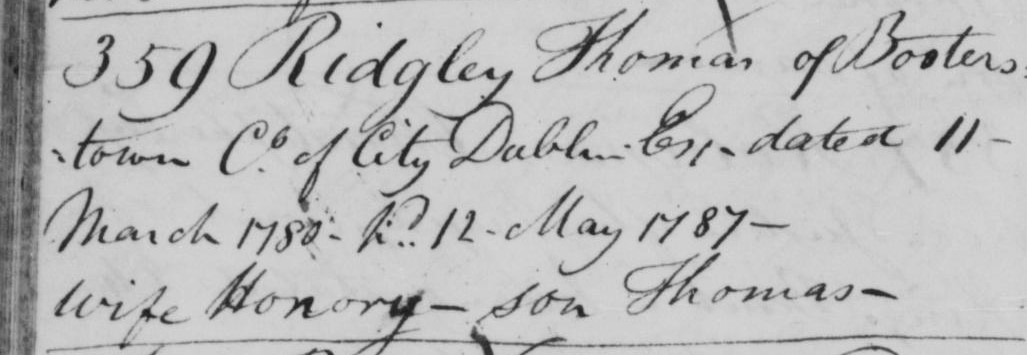 359 Ridgley Thomas of Booters-
-town Co. of City Dublin Esq. dated 11-
March 1780 - Pd. 12 - May 1787 -
Wife Honory - son Thomas -